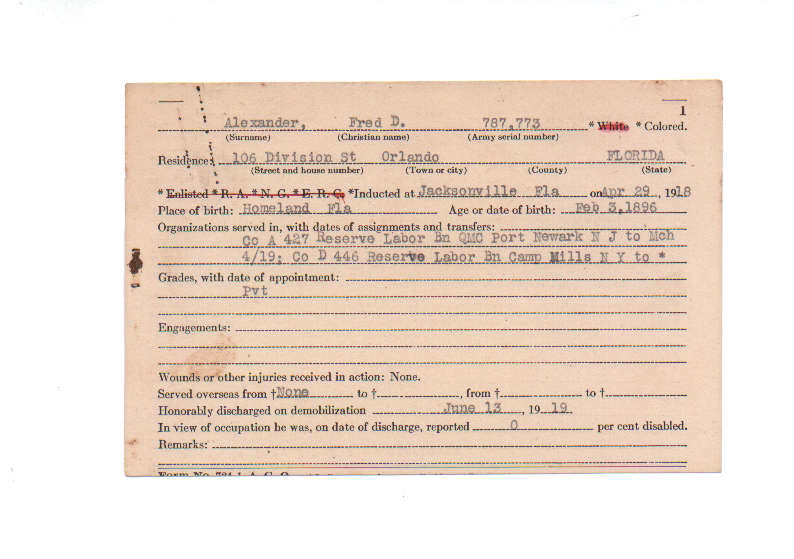 1
Alexander, Fred D. 787,773 * White * Colored.
(Surname) (Christian name) (Army serial number)
Residence: 106 Division St Orlando FLORIDA
(Street and house number) (Town or city) (County) (State)
* Enlisted * R. A. * N. G. * E. R. C. * Inducted at Jacksonville Fla on Apr 29, 1918
Place of birth: Homeland Fla Age or date of birth: Feb 3,1896
Organizations served in, with dates of assignments and transfers:
Co A 427 Reserve Labor Bn QMC Port Newark N J to Mch
4/19; Co D 446 Reserve Labor Bn Camp Mills N Y to *
Grades, with date of appointment:
Pvt
Engagements:
Wounds or other injuries received in action: None.
Served overseas from † None to †, from † to †
Honorably discharged on demobilization June 13, 1919
In view of occupation he was, on date of discharge, reported 0 per cent disabled.
Remarks:
Form No. 724